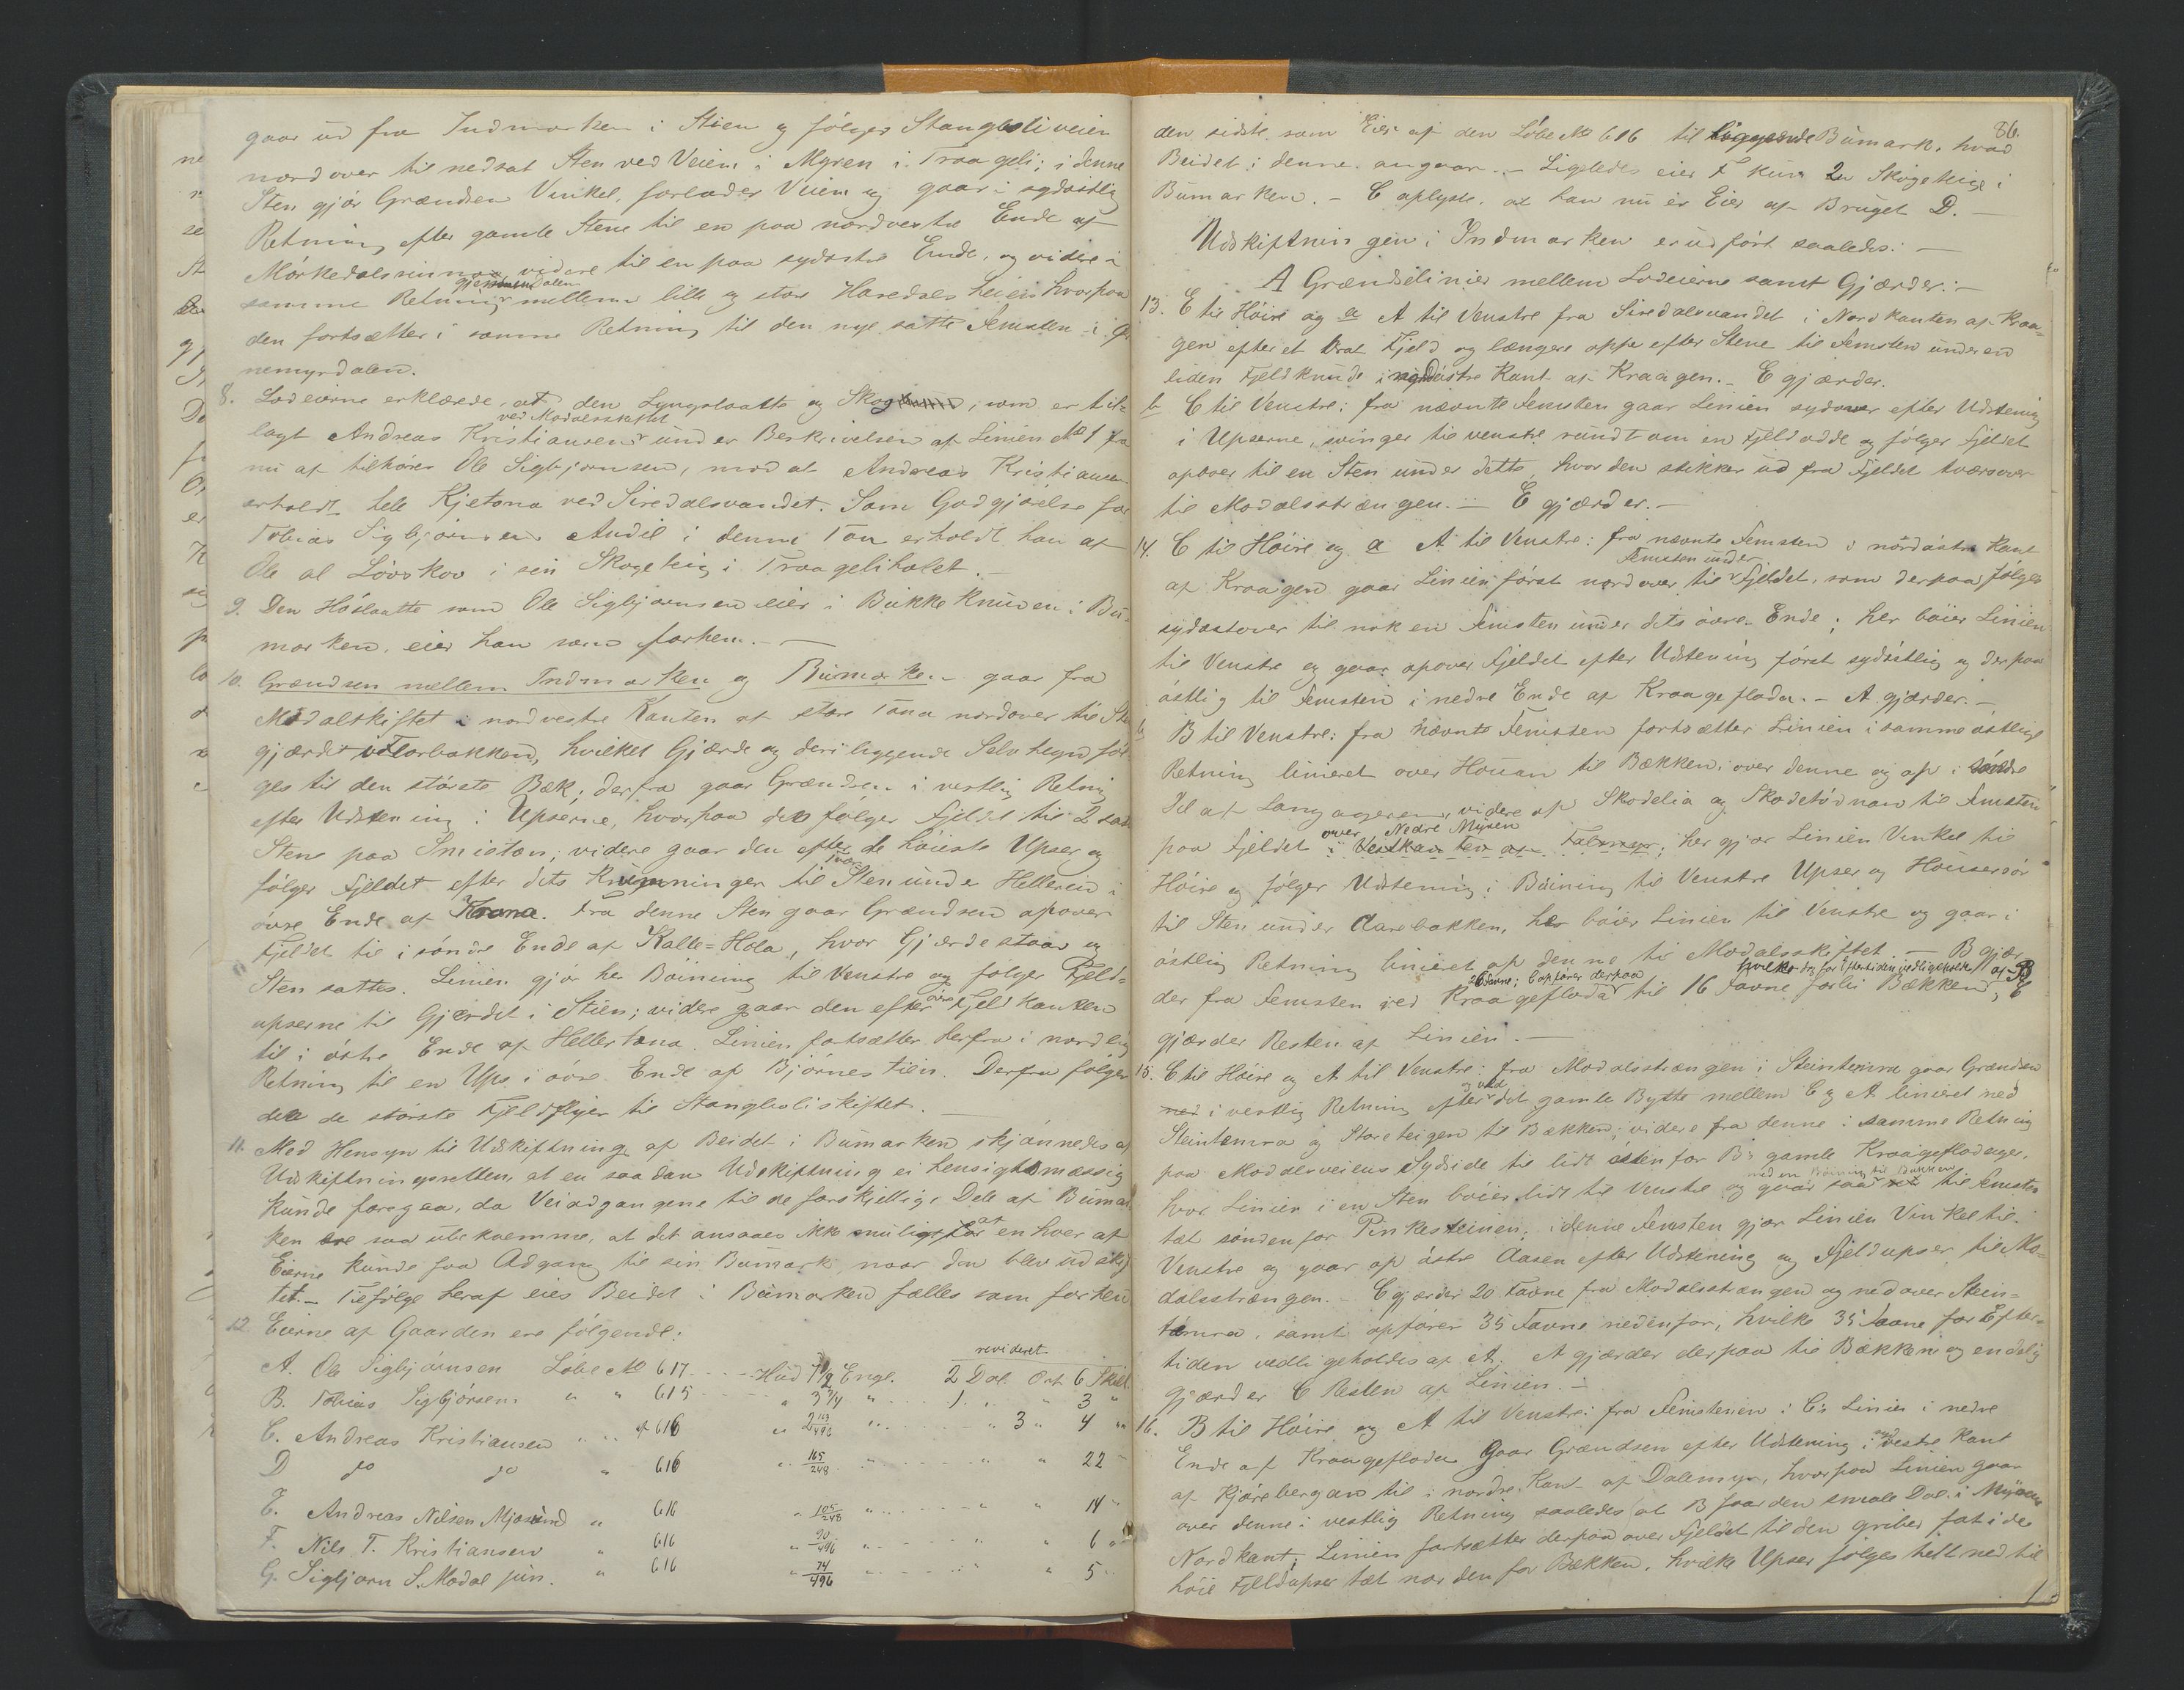 gaar ud fra Indmarken i Stien og følges Stangboliveien
nordover til nedsat Sten ved Veien i Myren i Traageli; i denne
Sten gjør Grændsen Vinkel, forlader Veien og gaar i sydøstlig
Retning efter gamle Stene til en paa nordvestre Ende af
Mørkedalsrinna videre til en paa sydøstre Ende, og videre i
samme Retning gjennem dalen mellem lille og store Haredalsheien hvorpaa
den fortsætter i samme Retning til den nye satte Femsten i
nemyrdalen.
8. Lodeierne erklærede, at den Lyngslaatte og Skog, som er til-
lagt Andreas Kristiansen ved Modalsskiftet under Beskrivelsen af Linien No 1 fra
nu af tilhører Ole Sigbjørnsen, mod at Andreas Kristiansen
erholdt hele Kjetona ved Siredalsvandet. Som Godgjørelse for
Tobias Sigbjørnsens Andel i denne Tøn erholdt han af
Ole al Løvskov i sin Skogeteig i Traageliholet.
9. Den Høslaatte som Ole Sigbjørnsen eier i Bukkeknuden i Bu-
marken, eier han som forhen.
10. Grændsen mellem Indmarken og Bumarken gaar fra
Modalskiftet i nordvestre Kanten af store Tona nordover til
gjærdet i Florbakken, hvilket Gjærde og deri liggende Selvhegn føl-
ges til den største Bæk; derfra gaar Grændsen i vestlig Retning
efter Udstening i Upserne, hvorpaa den følger Fjeldet til 2 satte
Stene paa Smieton; videre gaar den efter de høieste Upser og
følger Fjeldet efter dets Krumninger til Sten under Helleren i
øvre Ende af Krona. Fra denne Sten gaar Grændsen opover
Fjeldet til i søndre Ende af Kalle-Hola, hvor Gjærde staar og
Sten sattes. Linien gjør her Bøining til Venstre og følger Fjeld-
upserne til Gjærdet i Stien; videre gaar den efter øvre Fjeldkanten
til i østre Ende af Hellertona. Linien fortsætter herfra i nordlig
Retning til en Ups i øvre Ende af Bjørnestien. Derfra følger
den de største Fjeldflyer til Stangboliskiftet.
11. Med Hensyn til Udskiftning af Beidet i Bumarken skjønnedes af
Udskiftningsretten, at en saadan Udskiftning ei hensigtsmæssig
kunde foregaa, da Veiadgangene til de forskjellige Dele af Bumar-
ken ere saa ubekvemme, at det ansaaes ikke muligt at enhver af
Eierne kunde faa Adgang til sin Bumark, naar den blev udskif-
tet. – Tilfølge heraf eies Beidet i Bumarken fælles som forhen
12. Eierne af Gaarden ere følgende:
revideret
A. Ole Sigbjørnsen Løbe No 617 Hud 7½ Engl. 2 Dal. Ort 6 Skill
B. Tobias Sigbjørnsen " " 615 " 3¾ " 1 " " 3 "
C. Andreas Kristiansen " " af 616 " 2 163/496 " " 3 " 4 "
D do do " 616 " 165/248 " " " 22 "
E. Andreas Nilsen Mjøsund " 616 " 105/248 " " " 14 "
F. Nils T. Kristiansen " 616 " 90/496 " " " 6 "
G. Sigbjørn S. Modal jun. " 616 " 74/496 " " " 5 "
86.
den sidste som Eier af den Løbe No 616 til liggende Bumark, hvad
Beidet i denne angaar. – Ligeledes eier F kun 2 Skogeteige i
Bumarken. – C oplyste, at han nu er Eier af Bruget D. –
Udskiftningen i Indmarken er udført saaledes: –
A Grændselinier mellem Lodeierne samt Gjærder: –
13. E til Høire og a A til Venstre fra Siredalsvandet i Nordkanten af Kraa-
gen efter et brat Fjeld og længere oppe efter Stene til Femsten under en
liden Fjeldknude i nordøstre Kant af Kraagen. – E gjærder.
b C til Venstre: fra nævnte Femsten gaar Linien sydover efter Udstening
i Upserne, svinger til venstre rundt om en Fjeldodde og følger Fjeldet
opover til en Sten under dette, hvor den stikker ud fra Fjeldet tværsover
til Modalsstrængen. – E gjærder. –
14. C til Høire og a A til Venstre: fra nævnte Femsten i nordøstre Kant
af Kraagen gaar Linien først nordover til Femsten under Fjeldet, som derpaa følges
sydostover til nok en Femsten under dets øvre Ende; her bøier Linien
til Venstre og gaar opover Fjeldet efter Udstening først sydøstlig og derpaa
østlig til Femsten i nedre Ende af Kraagefloda. – A gjærder. –
b B til Venstre: fra nævnte Femsten fortsætter Linien i samme østlige
Retning linieret over Houan til Bækken; over denne og op i søndre
Del af Langageren, videre op Skodelia og Skodetødnan til Femsten
paa Fjeldet over Nedre Mysen i Vestkanten af Falmyr; her gjør Linien Vinkel til
Høire og følger Udstening i Bøining til Venstre Upser og Housersør
til Sten under Aarebakken, her bøier Linien til Venstre og gaar i
østlig Retning linieret op denne til Modalsskiftet. – B gjær-
der fra Femsten ved Kraagefloda 26 Favne; C opfører derpaa til 16 Favne forbi Bækken, hvilke dog for Eftertiden vedligeholdes af B; C
gjærder Resten af Linien. –
15. C til Høire og A til Venstre: fra Modalsstrængen i Steintemra gaar Grændsen
ned i vestlig Retning efter og ved det gamle Bytte mellem C og A linieret ned
Steintemra og Storeteigen til Bækken; videre fra denne i samme Retning
paa Modalsveiens Sydside til lidt østenfor B's gamle Kraageflodager,
hvor Linien i en Sten bøier lidt til Venstre og gaar saa med en Bøining til Bækken til Femsten
tæt søndenfor Pinkesteinen; i denne Femsten gjør Linien Vinkel til
Venstre og gaar op østre Aasen efter Udstening og Fjeldupser til Mo-
dalsstrængen. – C gjærder 20 Favne fra Modalsstrængen og nedover Stein-
temra, samt opfører 35 Favne nedenfor, hvilke 35 Favne for Efter-
tiden vedligeholdes af A. A gjærder derpaa til Bækken og endelig
gjærder C Resten af Linien. –
16. B til Høire og A til Venstre: fra Femstenen i C's Linie i nedre
Ende af Kraageflodu gaar Grændsen efter Udstening i sydvestre Kant
af Kjørebergan til i nordre Kant af Dalemyr, hvorpaa Linien gaar
over denne i vestlig Retning saaledes at B faar den smale Dal i Myrens
Nordkant; Linien fortsætter derpaa over Fjeldet til den griber fat i de
høie Fjeldupser tæt nordenfor Bækken, hvilke Upser følges helt ned til